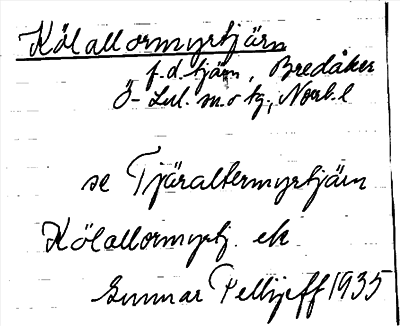 Kölallormyrtjärn
f.d. tjärn, Bredåker
Ö-Lul. m o tg, Norrb. l
se Tjäraltermyrtjärn
Kölallormyrtj. ek
Gunnar Pellijeff 1935